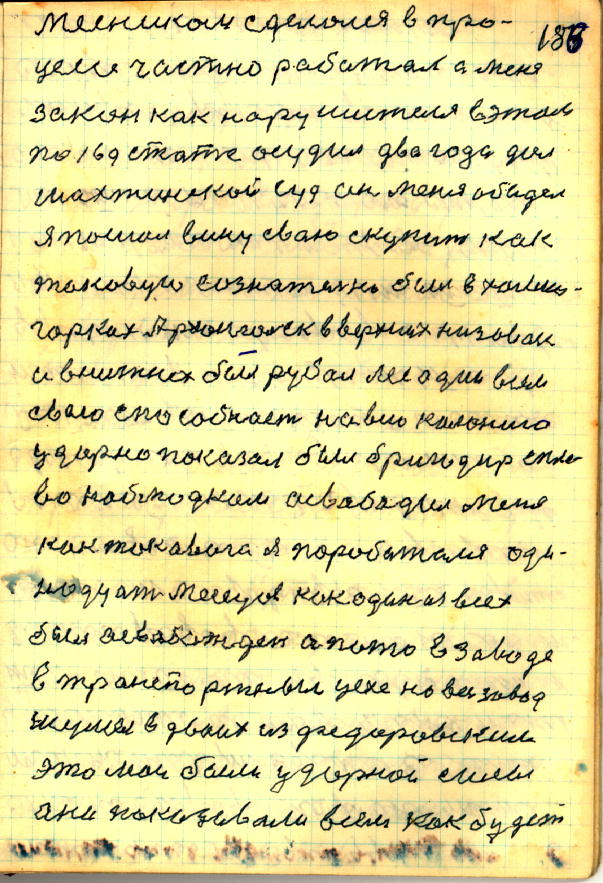 186
Месником сделолся в про-
цеся частно работал а меня
закон как нарушителя в этом
по 169 стате осудил два года дал
шахтинской суд он меня обидел
я пошол вину сваю скупит как
таковую сознателно был в холмо-
горках Архонгалск в верхних низовак
и в нижних был рубал лес один всем
сваю способнаст на всю калонию
ударно показал был бригодир
во наблюдком асвабадил меня
как токавога я поработал оди-
нодцат месецов как один из всех
был асвабажден а пото в заводе
в транспортным цехе на вез завод
в двоих из федаровским
это мы были ударной силы
ани показивали всем как будет